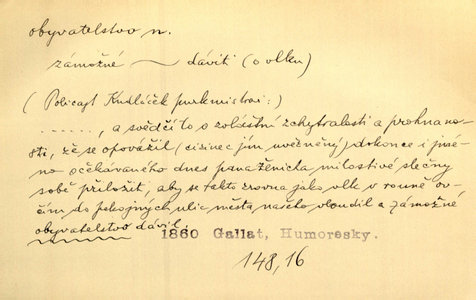 obyvatelstvo n.
zámožné ~ dáviti (o vlku)
(Policajt Kudláček purkmistrovi:)
......, a svědčí to o zvláštní zchytralosti a prohnano-
sti, že se opovážil (cizinec jím uvězněný) dokonce i jmé-
no očekávaného dnes pana ženicha milostivé slečny
sobě přiložit, aby se takto zrovna jako vlk v rouně ov-
čím do pokojných ulic města našeho vloudil a zámožné
obyvatelstvo dávil.
1860 Gallat, Humoresky.
148,16